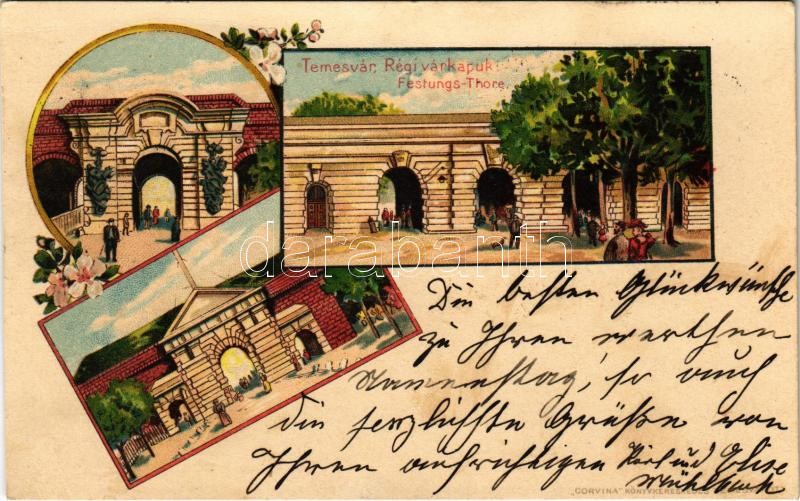 Temesvár, Régi várkapuk.
Festungs-Thore.
darabanth
Die besten Glückwünsche
zu Ihren werthen
Namenstag, so auch
die herzlichste Grüße von
Ihren aufrichtigen Karl und Elise
Mühlbach
"CORVINA"